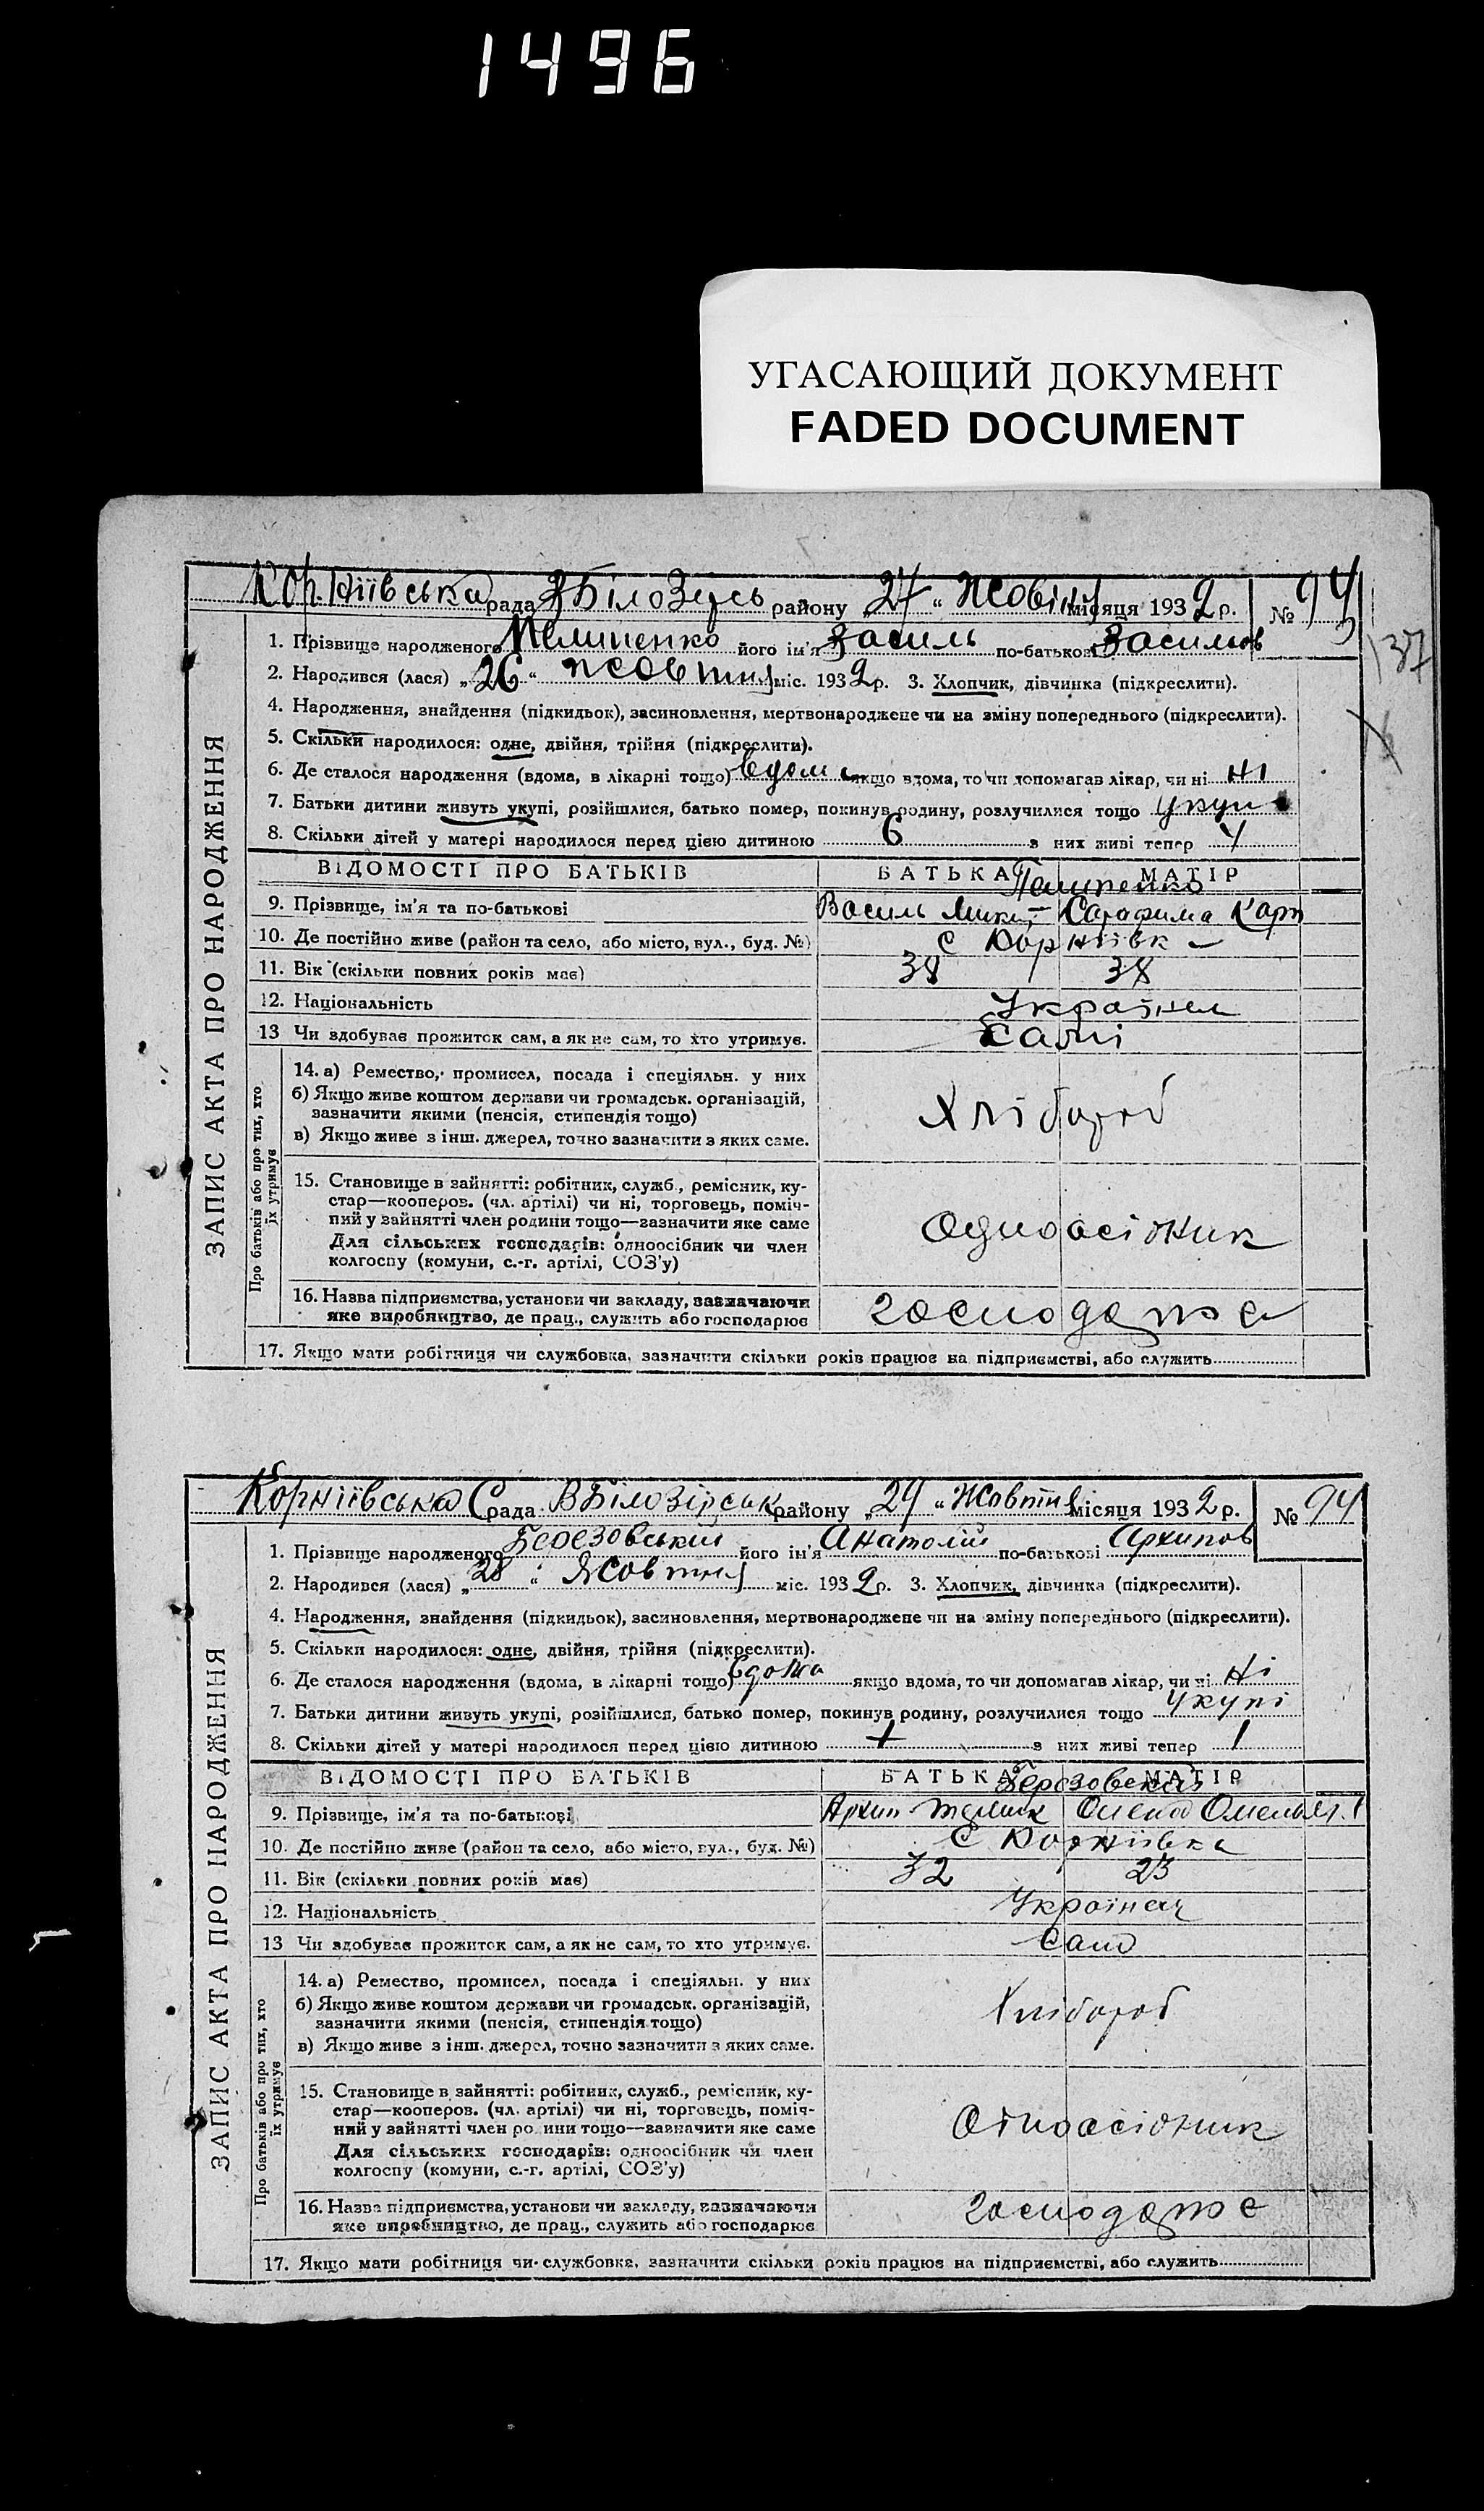 1496
УГАСАЮЩИЙ ДОКУМЕНТ
FADED DOCUMENT
ЗАПИС АКТА ПРО НАРОДЖЕННЯ
Корніївська рада району „27“ місяця 1932 р. №
137
1. Прізвище народженого його ім'я Василь по-батькові
2. Народився (лася) „26“ жовтня міс. 1932 р. 3. Хлопчик, дівчинка (підкреслити).
4. Народження, знайдення (підкидьок), засиновлення, мертвонароджене чи на зміну попереднього (підкреслити).
5. Скільки народилося: одне, двійня, трійня (підкреслити).
6. Де сталося народження (вдома, в лікарні тощо) вдома якщо вдома, то чи допомагав лікар, чи ні ні
7. Батьки дитини живуть укупі, розійшлися, батько помер, покинув родину, розлучилися тощо укупі
8. Скільки дітей у матері народилося перед цією дитиною 6 з них живі тепер 4
ВІДОМОСТІ ПРО БАТЬКІВ БАТЬКА МАТІР
9. Прізвище, ім'я та по-батькові Василь
10. Де постійно живе (район та село, або місто, вул., буд. №) с Корніївка
11. Вік (скільки повних років має) 38 38
12. Національність
13 Чи здобуває прожиток сам, а як не сам, то хто утримує. Самі
Про батьків або про тих, хто їх утримує
14. а) Ремество, промисел, посада і спеціяльн. у них
б) Якщо живе коштом держави чи громадськ. організацій,
зазначити якими (пенсія, стипендія тощо)
в) Якщо живе з інш. джерел, точно зазначити з яких саме.
Хлібороб
15. Становище в зайнятті: робітник, служб., ремісник, ку-
стар—кооперов. (чл. артілі) чи ні, торговець, поміч-
ний у зайнятті член родини тощо—зазначити яке саме
Для сільських господарів: одноосібник чи член
колгоспу (комуни, с.-г. артілі, СОЗ'у)
Одноосібник
16. Назва підприємства, установи чи закладу, зазначаючи
яке виробництво, де прац., служить або господарює
17. Якщо мати робітниця чи службовка, зазначити скільки років працює на підприємстві, або служить
ЗАПИС АКТА ПРО НАРОДЖЕННЯ
Корніївська С рада В Білозірськ району „29“ Жовтня місяця 1932 р. № 94
1. Прізвище народженого Березовський його ім'я Анатолій по-батькові Архипов
2. Народився (лася) „28“ Жовтня міс. 1932 р. 3. Хлопчик, дівчинка (підкреслити).
4. Народження, знайдення (підкидьок), засиновлення, мертвонароджене чи на зміну попереднього (підкреслити).
5. Скільки народилося: одне, двійня, трійня (підкреслити).
6. Де сталося народження (вдома, в лікарні тощо) вдома якщо вдома, то чи допомагав лікар, чи ні ні
7. Батьки дитини живуть укупі, розійшлися, батько помер, покинув родину, розлучилися тощо укупі
8. Скільки дітей у матері народилося перед цією дитиною з них живі тепер 1
ВІДОМОСТІ ПРО БАТЬКІВ БАТЬКА МАТІР
9. Прізвище, ім'я та по-батькові Архип
10. Де постійно живе (район та село, або місто, вул., буд. №) с Корніївка
11. Вік (скільки повних років має) 32 23
12. Національність
13 Чи здобуває прожиток сам, а як не сам, то хто утримує.
Про батьків або про тих, хто їх утримує
14. а) Ремество, промисел, посада і спеціяльн. у них
б) Якщо живе коштом держави чи громадськ. організацій,
зазначити якими (пенсія, стипендія тощо)
в) Якщо живе з інш. джерел, точно зазначити з яких саме.
Хлібороб
15. Становище в зайнятті: робітник, служб., ремісник, ку-
стар—кооперов. (чл. артілі) чи ні, торговець, поміч-
ний у зайнятті член родини тощо—зазначити яке саме
Для сільських господарів: одноосібник чи член
колгоспу (комуни, с.-г. артілі, СОЗ'у)
16. Назва підприємства, установи чи закладу, зазначаючи
яке виробництво, де прац., служить або господарює
17. Якщо мати робітниця чи службовка, зазначити скільки років працює на підприємстві, або служить